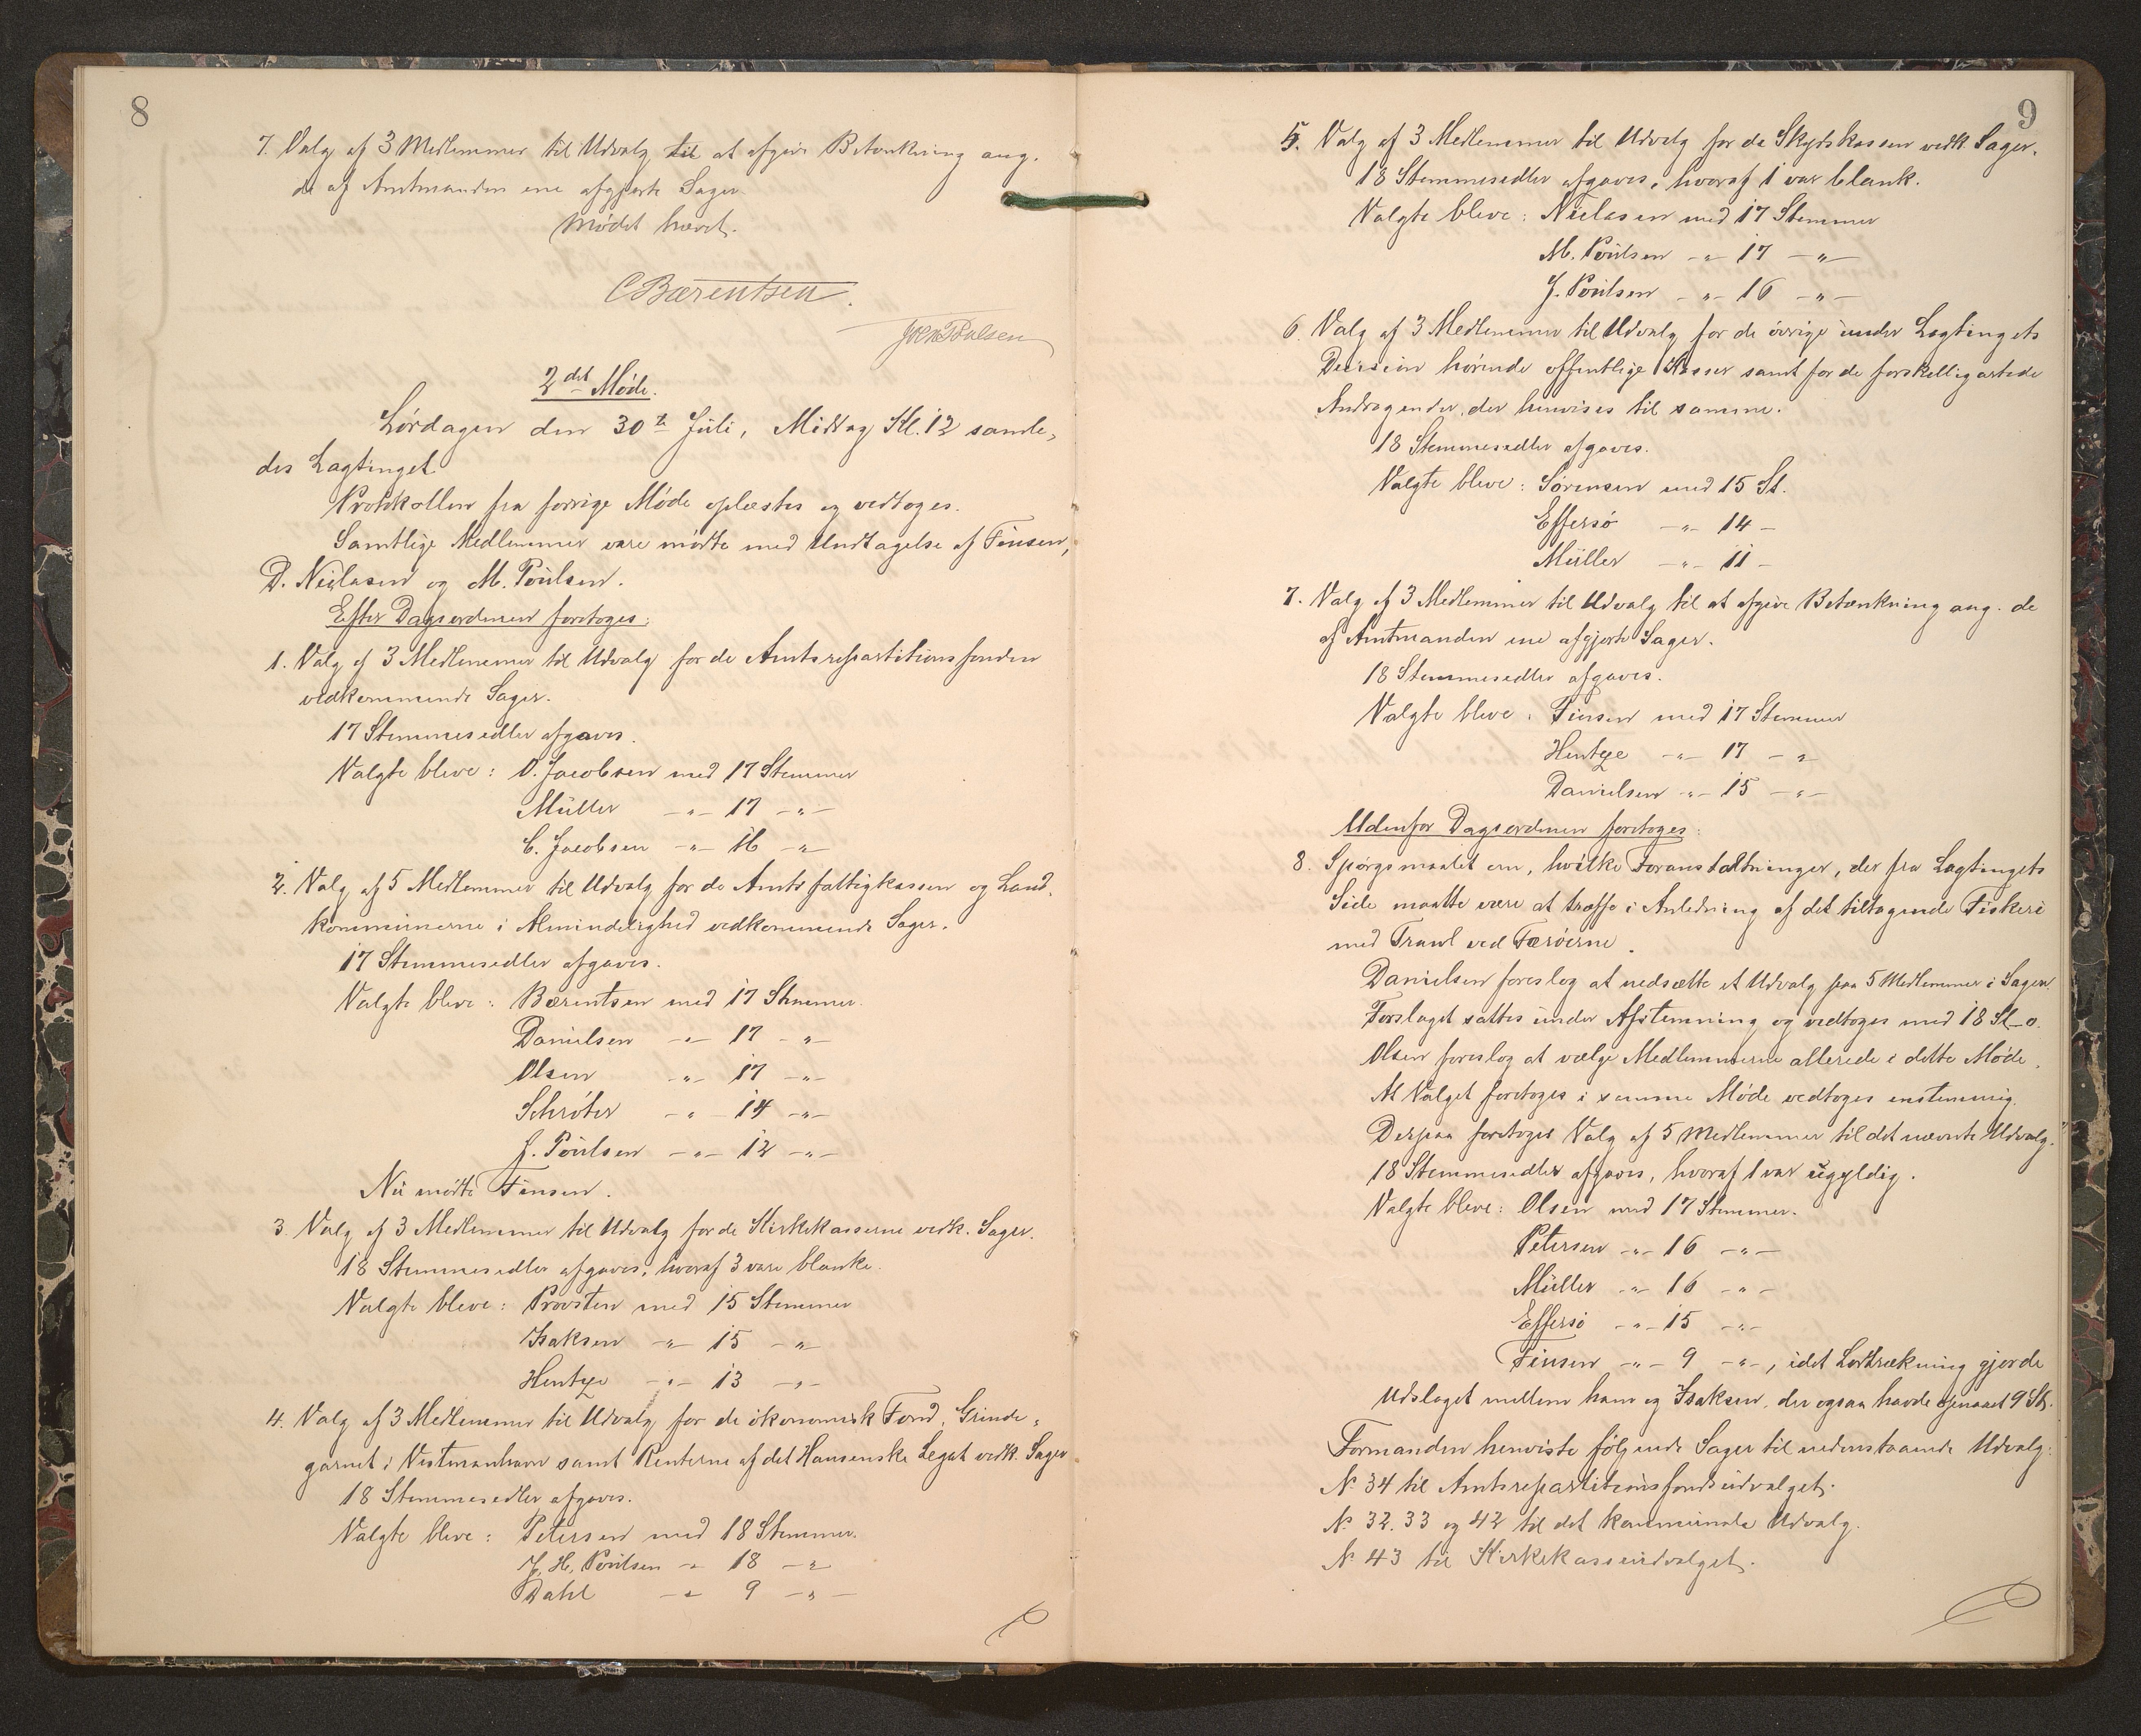 8
7. Valg af 3 Medlemmer til Udvalg til at afgive Betænkning ang.
de af Amtmanden ene afgjorte Sager.
Mødet hævet.
C Bærentsen.
2det Møde.
Lördagen den 30te Juli, Middag Kl. 12 samle-
des Lagtinget.
Protokollen fra forrige Møde oplæstes og vedtoges.
Samtlige Medlemmer vare mødte med Undtagelse af Finsen,
D. Nielasen og M. Poulsen.
Efter Dagsordenen foretoges:
1. Valg af 3 Medlemmer til Udvalg for de Amtsrepartitionsfonden
vedkommende Sager.
17 Stemmesedler afgaves.
Valgte bleve: O. Jacobsen med 17 Stemmer
Müller -"- 17 -"-
C. Jacobsen -"- 16 -"-
2. Valg af 5 Medlemmer til Udvalg for de Amtsfattigkassen og Land-
kommunerne i Almindelighed vedkommende Sager.
17 Stemmesedler afgaves.
Valgte bleve: Bærentsen med 17 Stemmer.
Danielsen -"- 17 -"-
Olsen -"- 17 -"-
Schröter -"- 14 -"-
J. Poulsen -"- 12 -"-
Nu mødte Finsen.
3. Valg af 3 Medlemmer til Udvalg for de Kirkekasserne vedk. Sager.
18 Stemmesedler afgaves, hvoraf 3 vare blanke.
Valgte bleve: Provsten med 15 Stemmer
Isaksen -"- 15 -"-
Hentze -"- 13 -"-
4. Valg af 3 Medlemmer til Udvalg for de ökonomisk Fond, Grinde-
garnet i Vestmanhavn samt Renterne af det Hansenske Legat vedk. Sager
18 Stemmesedler afgaves.
Valgte bleve: Petersen med 18 Stemmer.
J. H. Poulsen -"- 18 -"-
Dahl -"- 9 -"-
9
5. Valg af 3 Medlemmer til Udvalg for de Skydskassen vedk. Sager.
18 Stemmesedler afgaves, hvoraf 1 var blank.
Valgte bleve: Nielasen med 17 Stemmer
M. Poulsen -"- 17 -"-
J. Poulsen -"- 16 -"-
6. Valg af 3 Medlemmer til Udvalg for de övrige under Lagtingets
Decision hörende offentlige Kasser samt for de forskelligartede
Andragender, der henvises til samme.
18 Stemmesedler afgaves.
Valgte bleve: Sörensen med 15 St.
Effersö -"- 14 -
Müller -"- 11 -
7. Valg af 3 Medlemmer til Udvalg til at afgive Betænkning ang. de
af Amtmanden ene afgjorte Sager.
18 Stemmesedler afgaves.
Valgte bleve: Finsen med 17 Stemmer
Hentze -"- 17 -"-
Danielsen -"- 15 -"-
Udenfor Dagsordenen foretoges:
8. Spörgsmaalet om, hvilke Foranstaltninger, der fra Lagtingets
Side maatte være at træffe i Anledning af det tiltagende Fiskeri
med Trawl ved Færöerne.
Danielsen foreslog at nedsætte et Udvalg paa 5 Medlemmer i Sagen.
Forslaget sattes under Afstemning og vedtoges med 18 St - 0.
Olsen foreslog at vælge Medlemmerne allerede i dette Møde.
At Valget foretoges i samme Møde vedtoges enstemmig.
Derpaa foretoges Valg af 5 Medlemmer til det nævnte Udvalg.
18 Stemmesedler afgaves, hvoraf 1 var ugyldig.
Valgte bleve: Olsen med 17 Stemmer.
Petersen -"- 16 -"-
Müller -"- 16 -"-
Effersö -"- 15 -"-
Finsen -"- 9 -"-, idet Lodtrækning gjorde
Udslaget mellem ham og Isaksen, der ogsaa havde opnaaet 9 St.
Formanden henviste fölgende Sager til nedenstaaende Udvalg:
N. 34 til Amtsrepartitionsfondsudvalget.
N. 32. 33 og 42 til det kommunale Udvalg.
N. 43 til Kirkekasseudvalget.